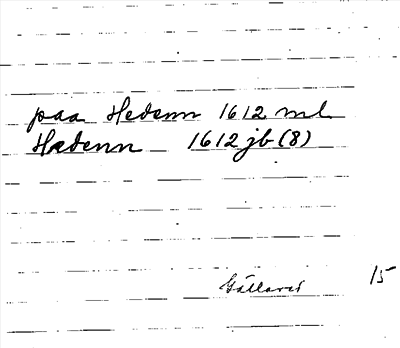 paa Hedenn 1612 ml.
Hædenn 1612 jb (8)
Gällared 15